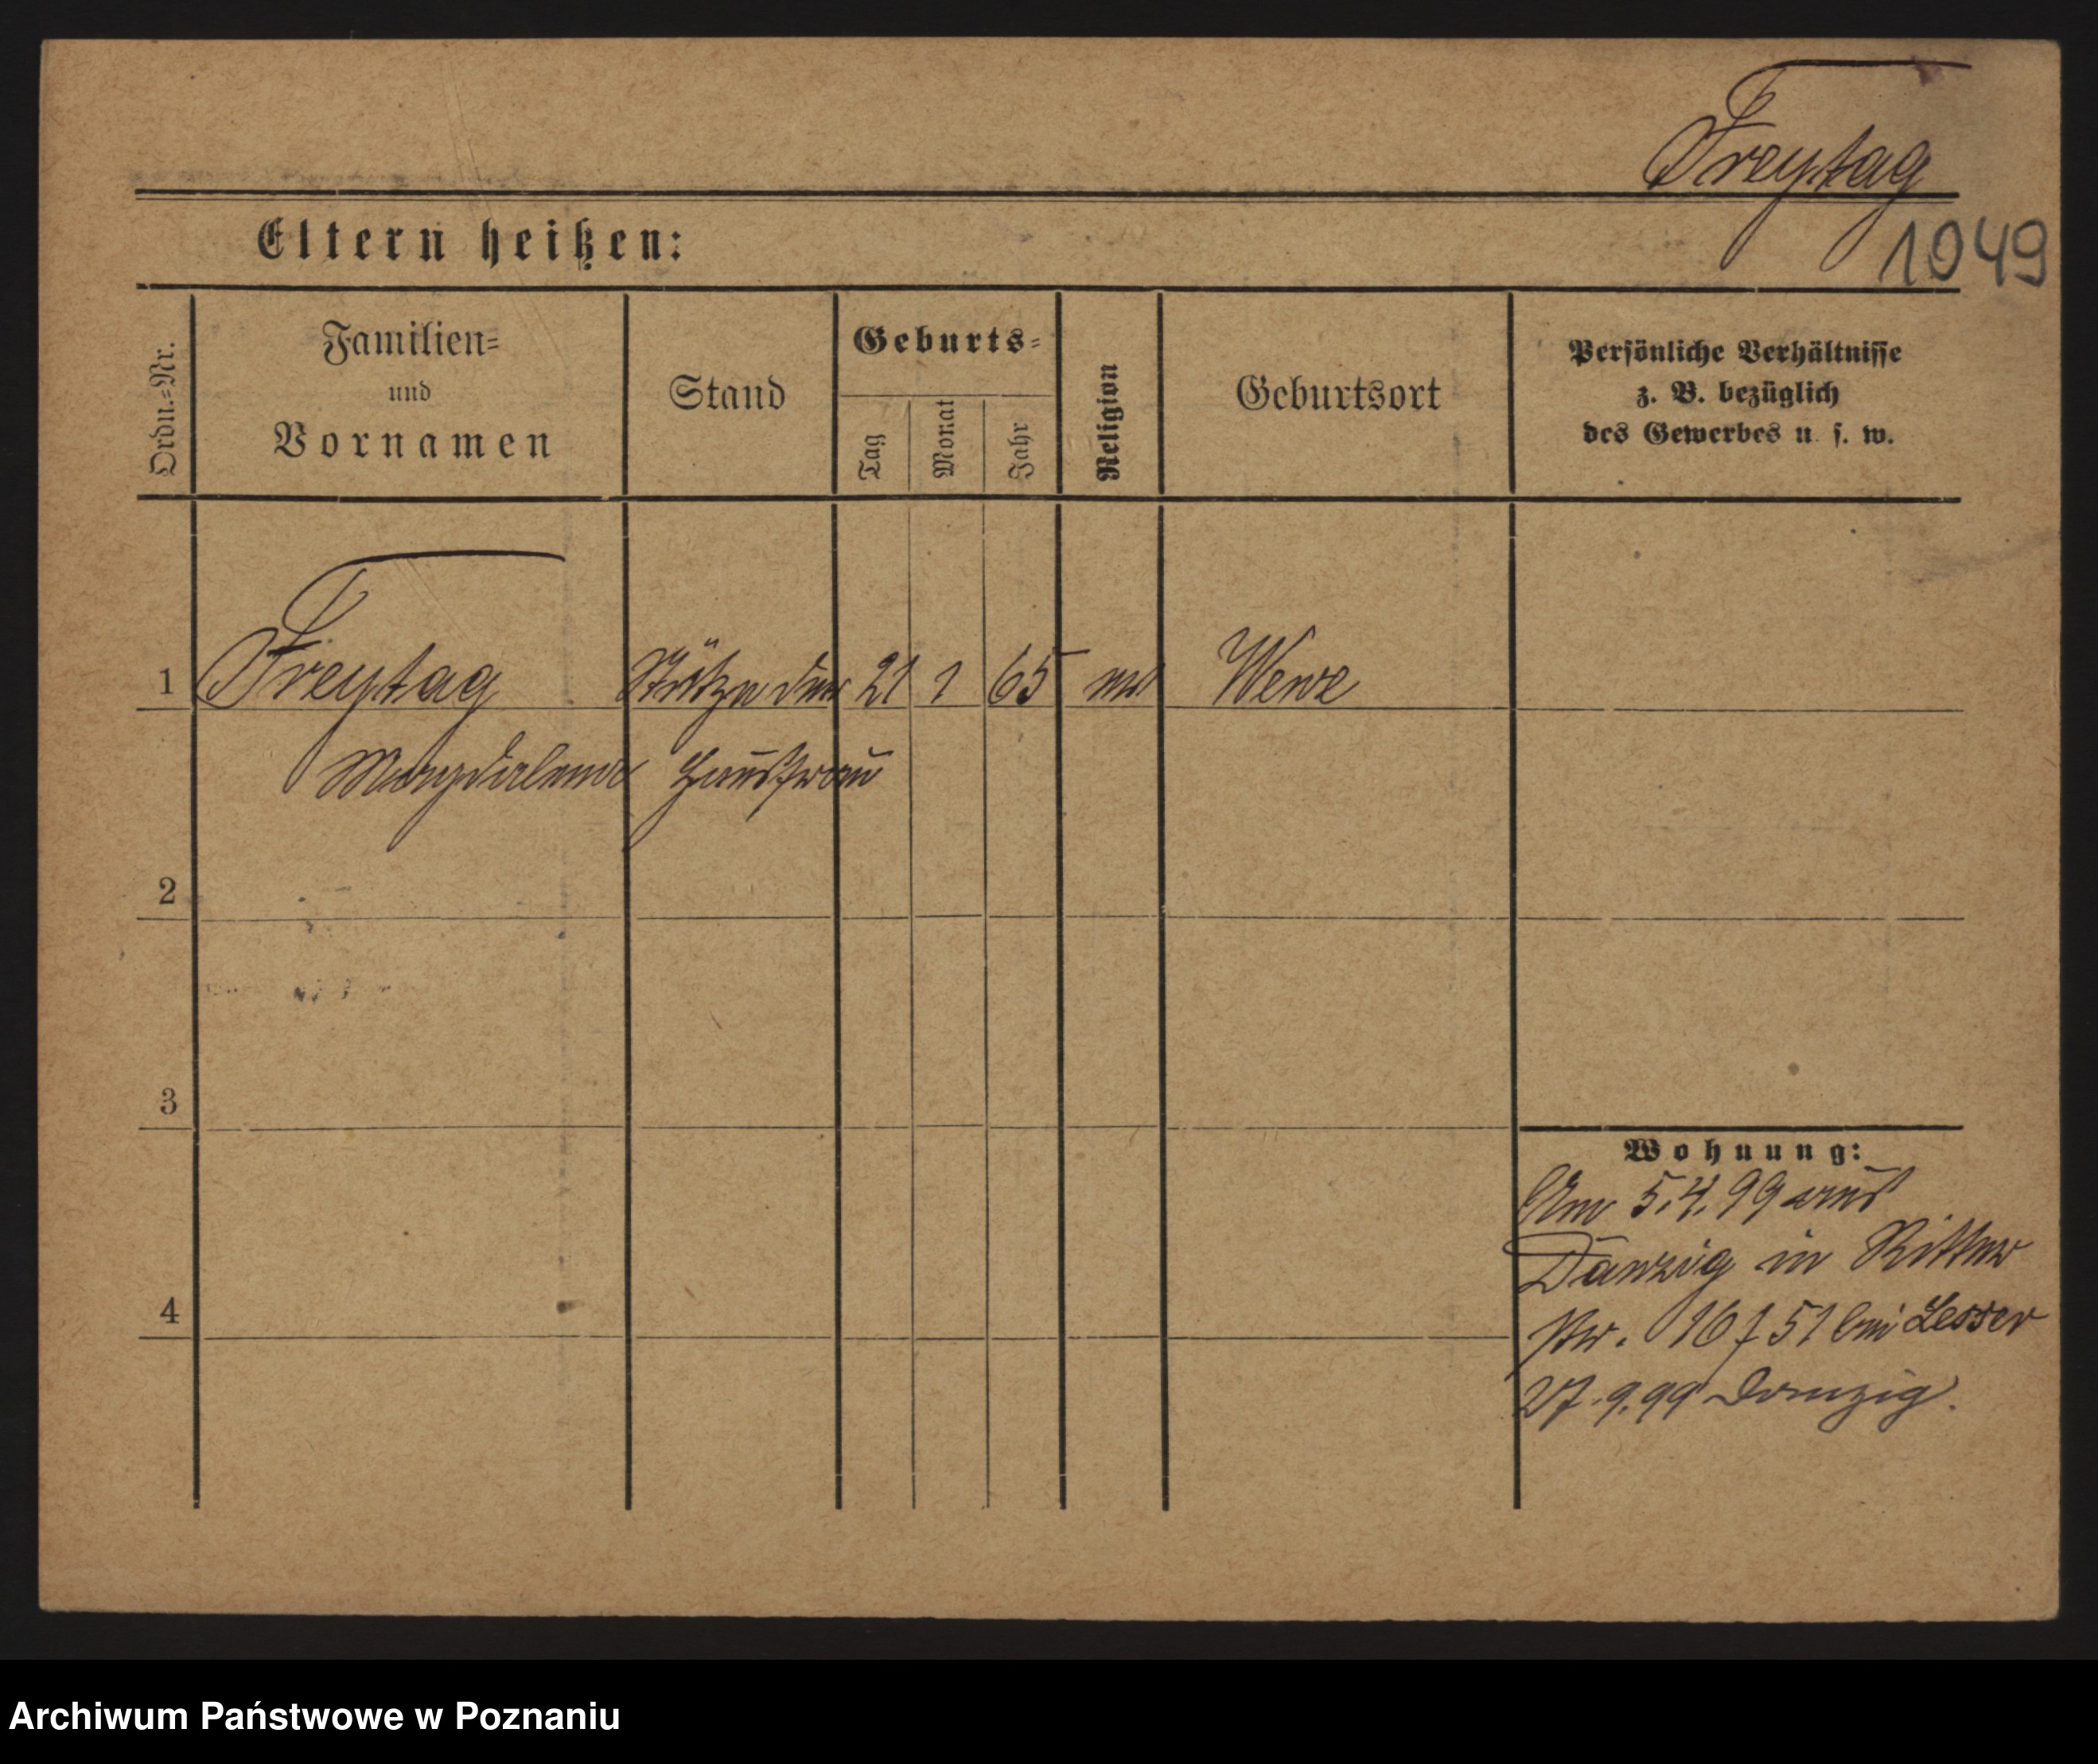 Freytag
Eltern heißen:
1049
Ordn.-Nr.
Familien-
und
Vornamen
Stand
Geburts-
Tag
Monat
Jahr
Religion
Geburtsort
Persönliche Verhältnisse
z. B. bezüglich
des Gewerbes u. s. w.
1 Freytag Stütze der 21 1 65 Wewe
Magdalene Hausfrau
2
3
Wohnung:
Am 5.4.99 aus
Danzig in Ritter
4
Str. 16 I 51 bei Lesser
27.9.99 Danzig.
Archiwum Państwowe w Poznaniu